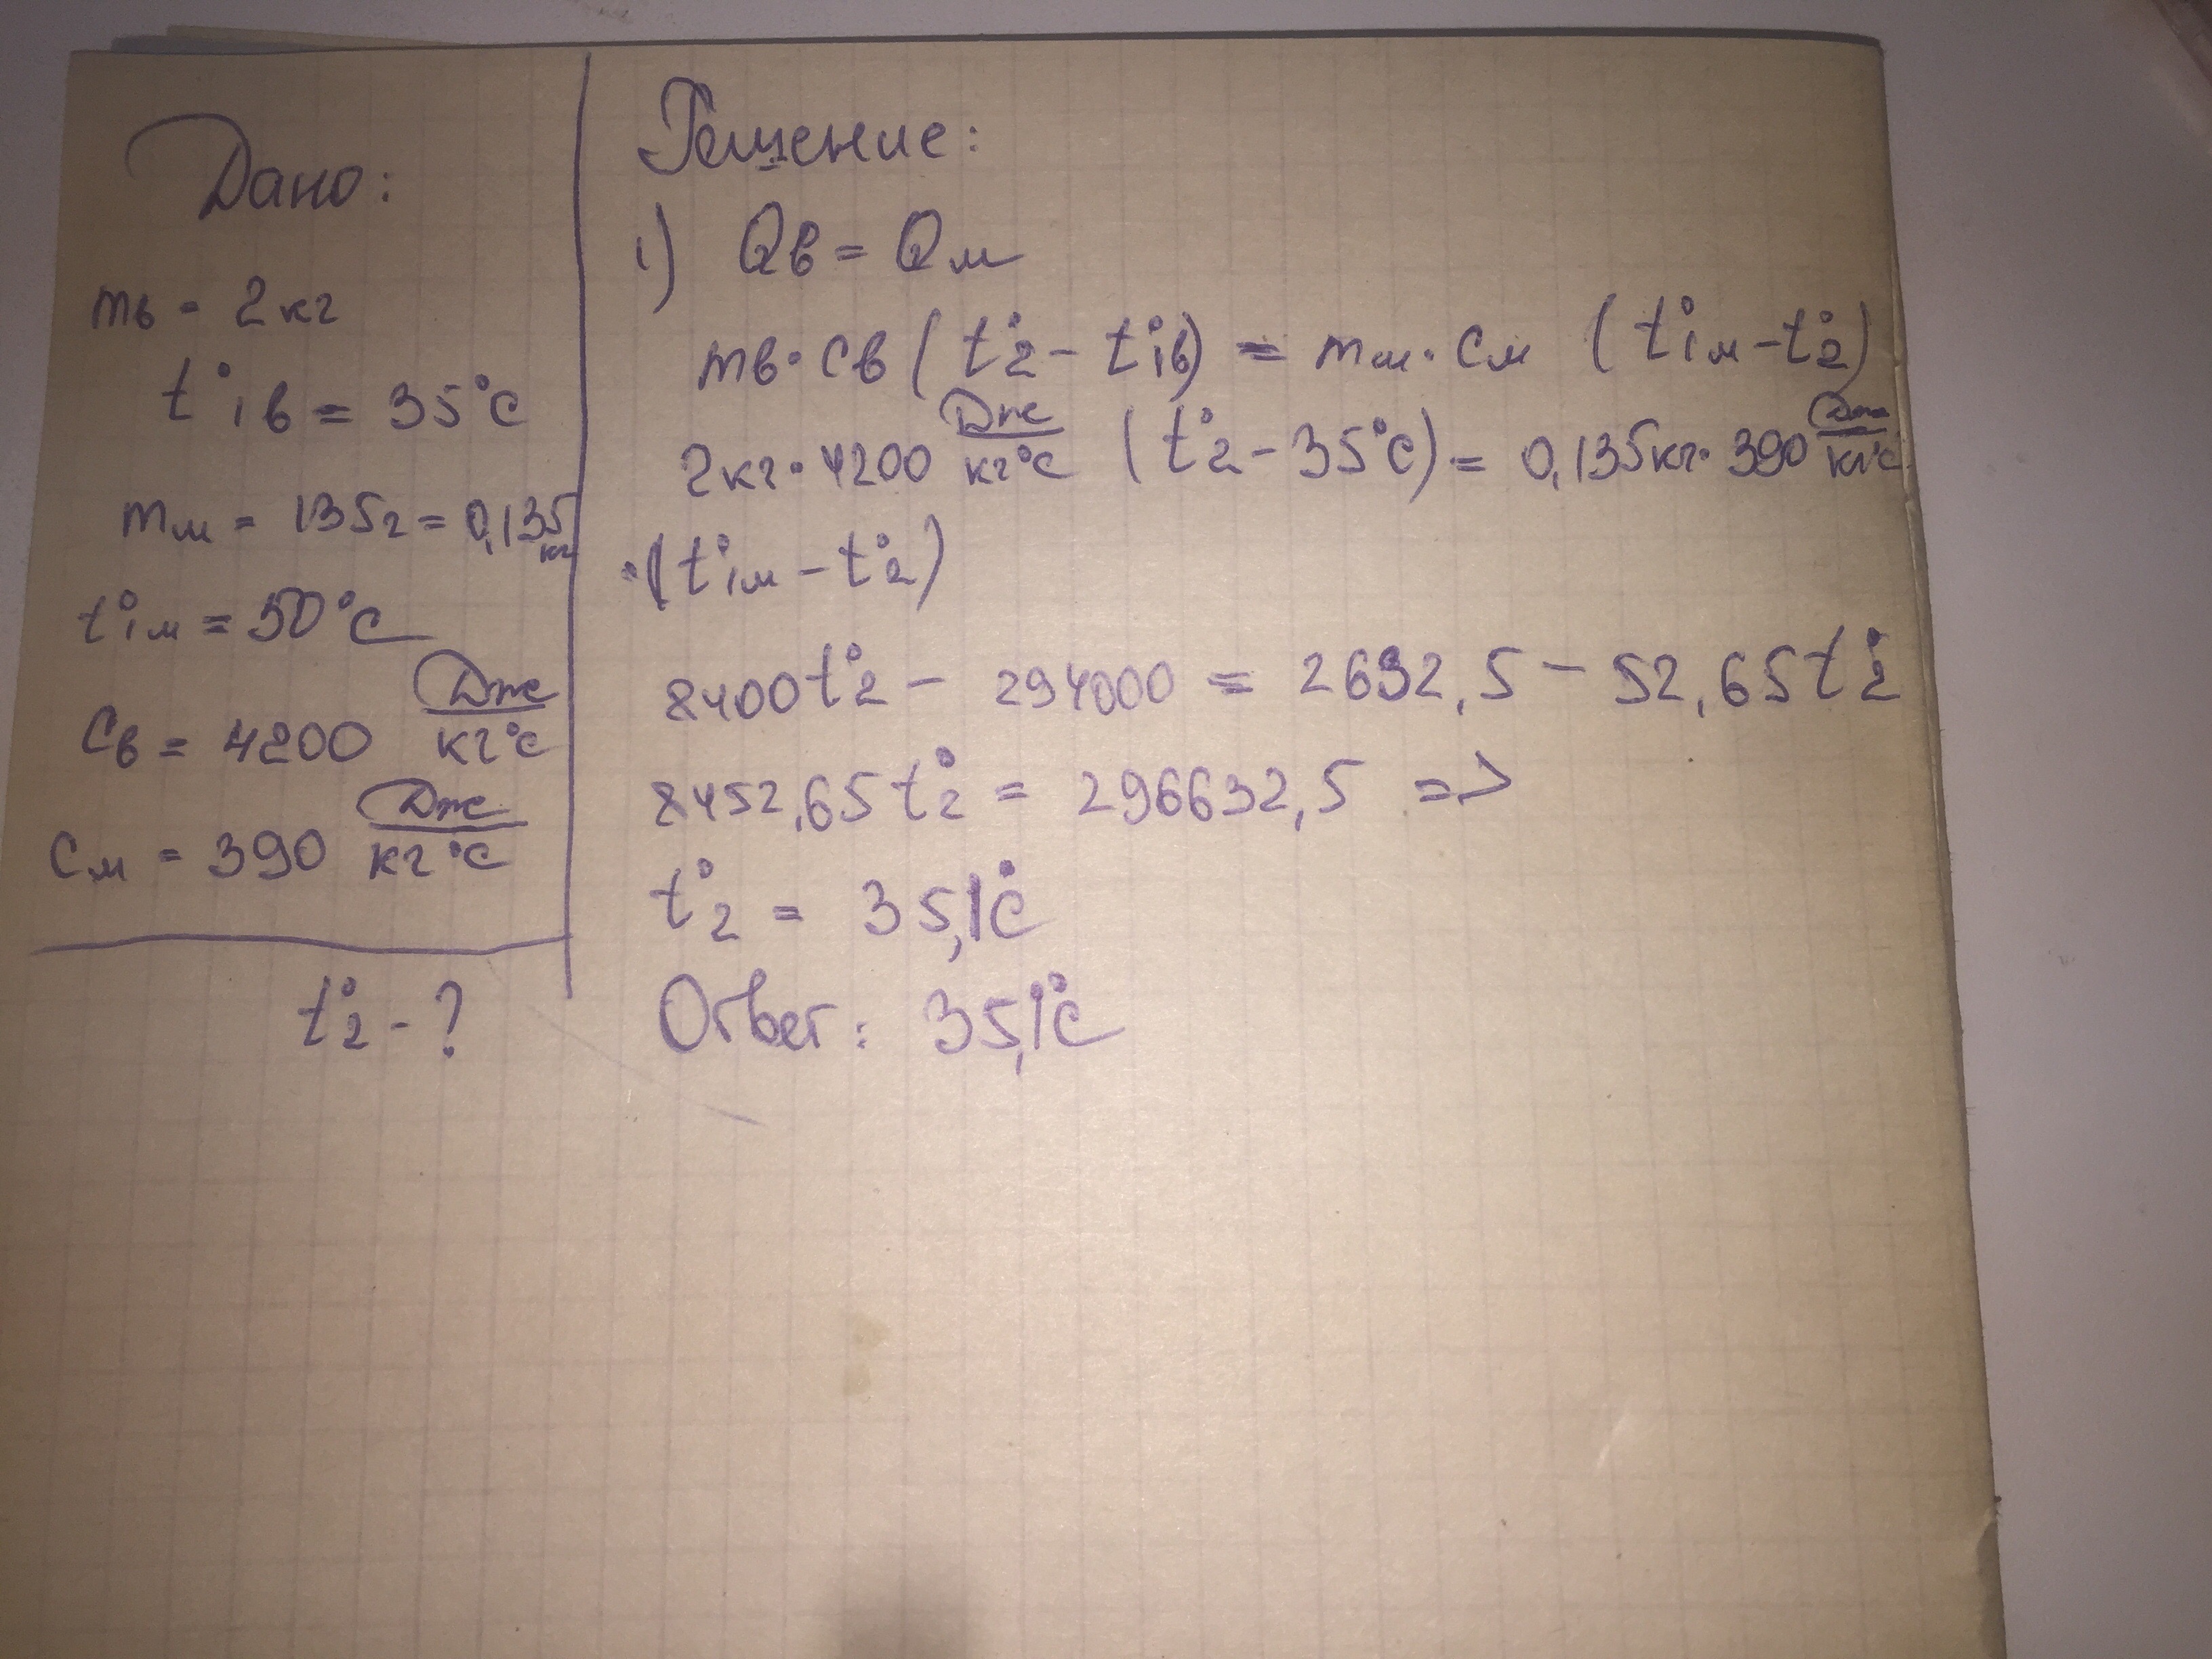 Дано:
mв = 2 кг
t°1в = 35°C
mм = 135г = 0,135 кг
t°1м = 50°C
Cв = 4200 Дж/кг°C
Cм = 390 Дж/кг°C
t°2 - ?
Решение:
1) Qв = Qм
mв · Cв (t°2 - t°1в) = mм · Cм (t°1м - t°2)
2кг · 4200 Дж/кг°C (t°2 - 35°C) = 0,135кг · 390 Дж/кг°C
· (t°1м - t°2)
8400t°2 - 294000 = 2632,5 - 52,65t°2
8452,65t°2 = 296632,5 =>
t°2 = 35,1°C
Ответ: 35,1°C